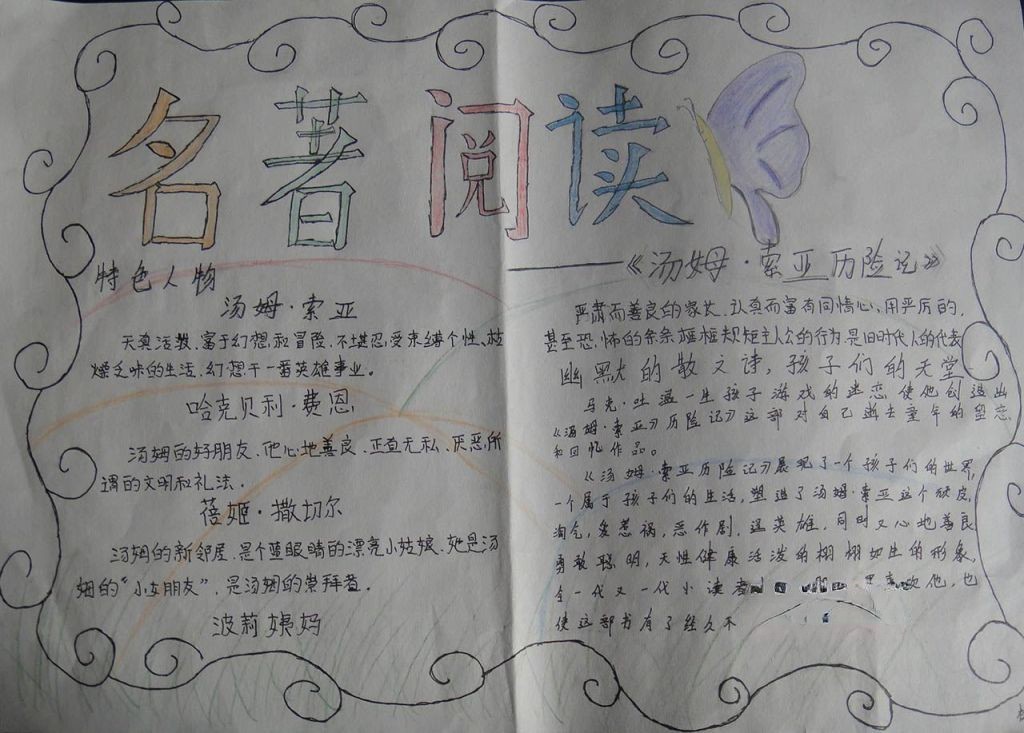 名著阅读
——《汤姆·索亚历险记》
特色人物
汤姆·索亚
天真活泼、富于幻想和冒险、不堪忍受束缚个性、枯
燥乏味的生活、幻想干一番英雄事业。
哈克贝利·费恩
汤姆的好朋友、他心地善良、正直无私、厌恶所
谓的文明和礼法.
蓓姬·撒切尔
汤姆的新邻居.是个蓝眼睛的漂亮小姑娘.她是汤
姆的“小女朋友”.是汤姆的崇拜者.
波莉姨妈
严肃而善良的家长.认真而富有同情心.用严厉的,
甚至恐怖的条条框框规矩主人公的行为.是旧时代人的代表
幽默的散文诗,孩子们的天堂
马克·吐温一生孩子游戏的迷恋使他创造出
《汤姆·索亚历险记》这部对自己逝去童年的留恋
和回忆作品。
《汤姆·索亚历险记》展现了一个孩子们的世界,
一个属于孩子们的生活,塑造了汤姆·索亚这个顽皮,
淘气,爱惹祸,恶作剧,逞英雄,同时又心地善良
勇敢聪明,天性健康活泼的栩栩如生的形象,
令一代又一代小读者 喜欢他,也
使这部书有了经久不